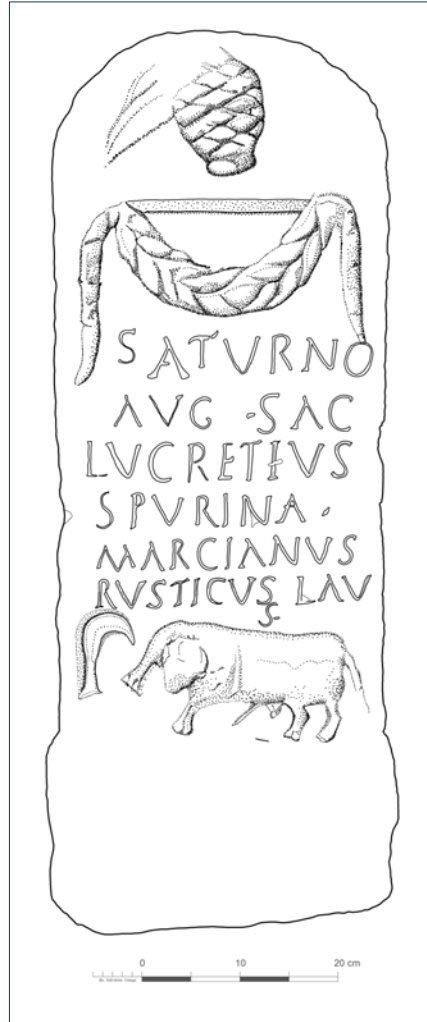 SATURNO
AUG · SAC
LUCRETIUS
SPURINA ·
MARCIANUS
RUSTICUS LAU
S
0 10 20 cm